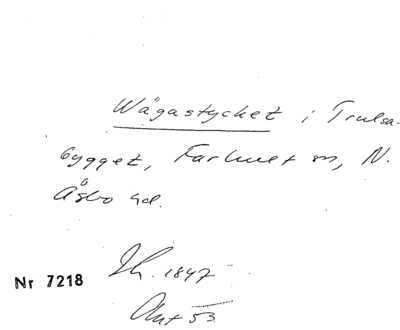 Wägastycket i Trulsa-
bygget, Farhult sn, N.
Åsbo hd.
Nr 7218
1847
53